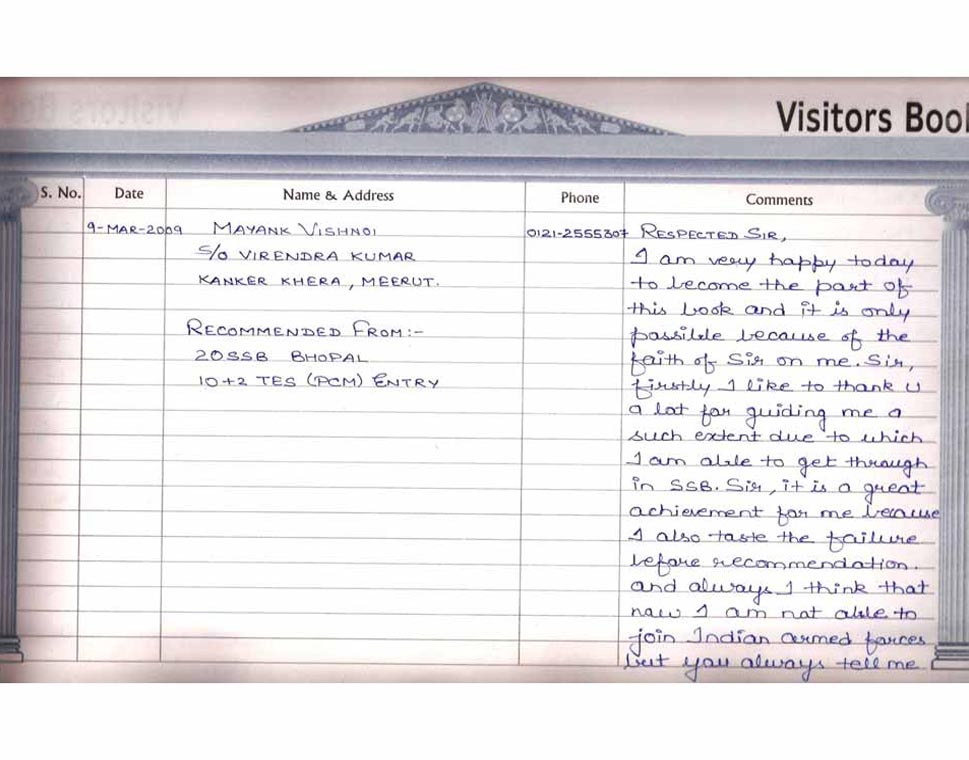 Visitors Boo
S. No. Date Name & Address Phone Comments
9-MAR-2009 MAYANK VISHNOI 0121-2555307 RESPECTED SIR,
S/O VIRENDRA KUMAR
KANKER KHERA, MEERUT.
RECOMMENDED FROM:-
20SSB BHOPAL
10+2 TES (PCM) ENTRY
I am very happy today
to become the part of
this book and it is only
possible because of the
faith of Sir on me. Sir,
firstly I like to thank U
a lot for guiding me a
such extent due to which
I am able to get through
in SSB. Sir, it is a great
achievement for me because
I also taste the failure
before recommendation.
and always I think that
now I am not able to
join Indian armed forces
but you always tell me